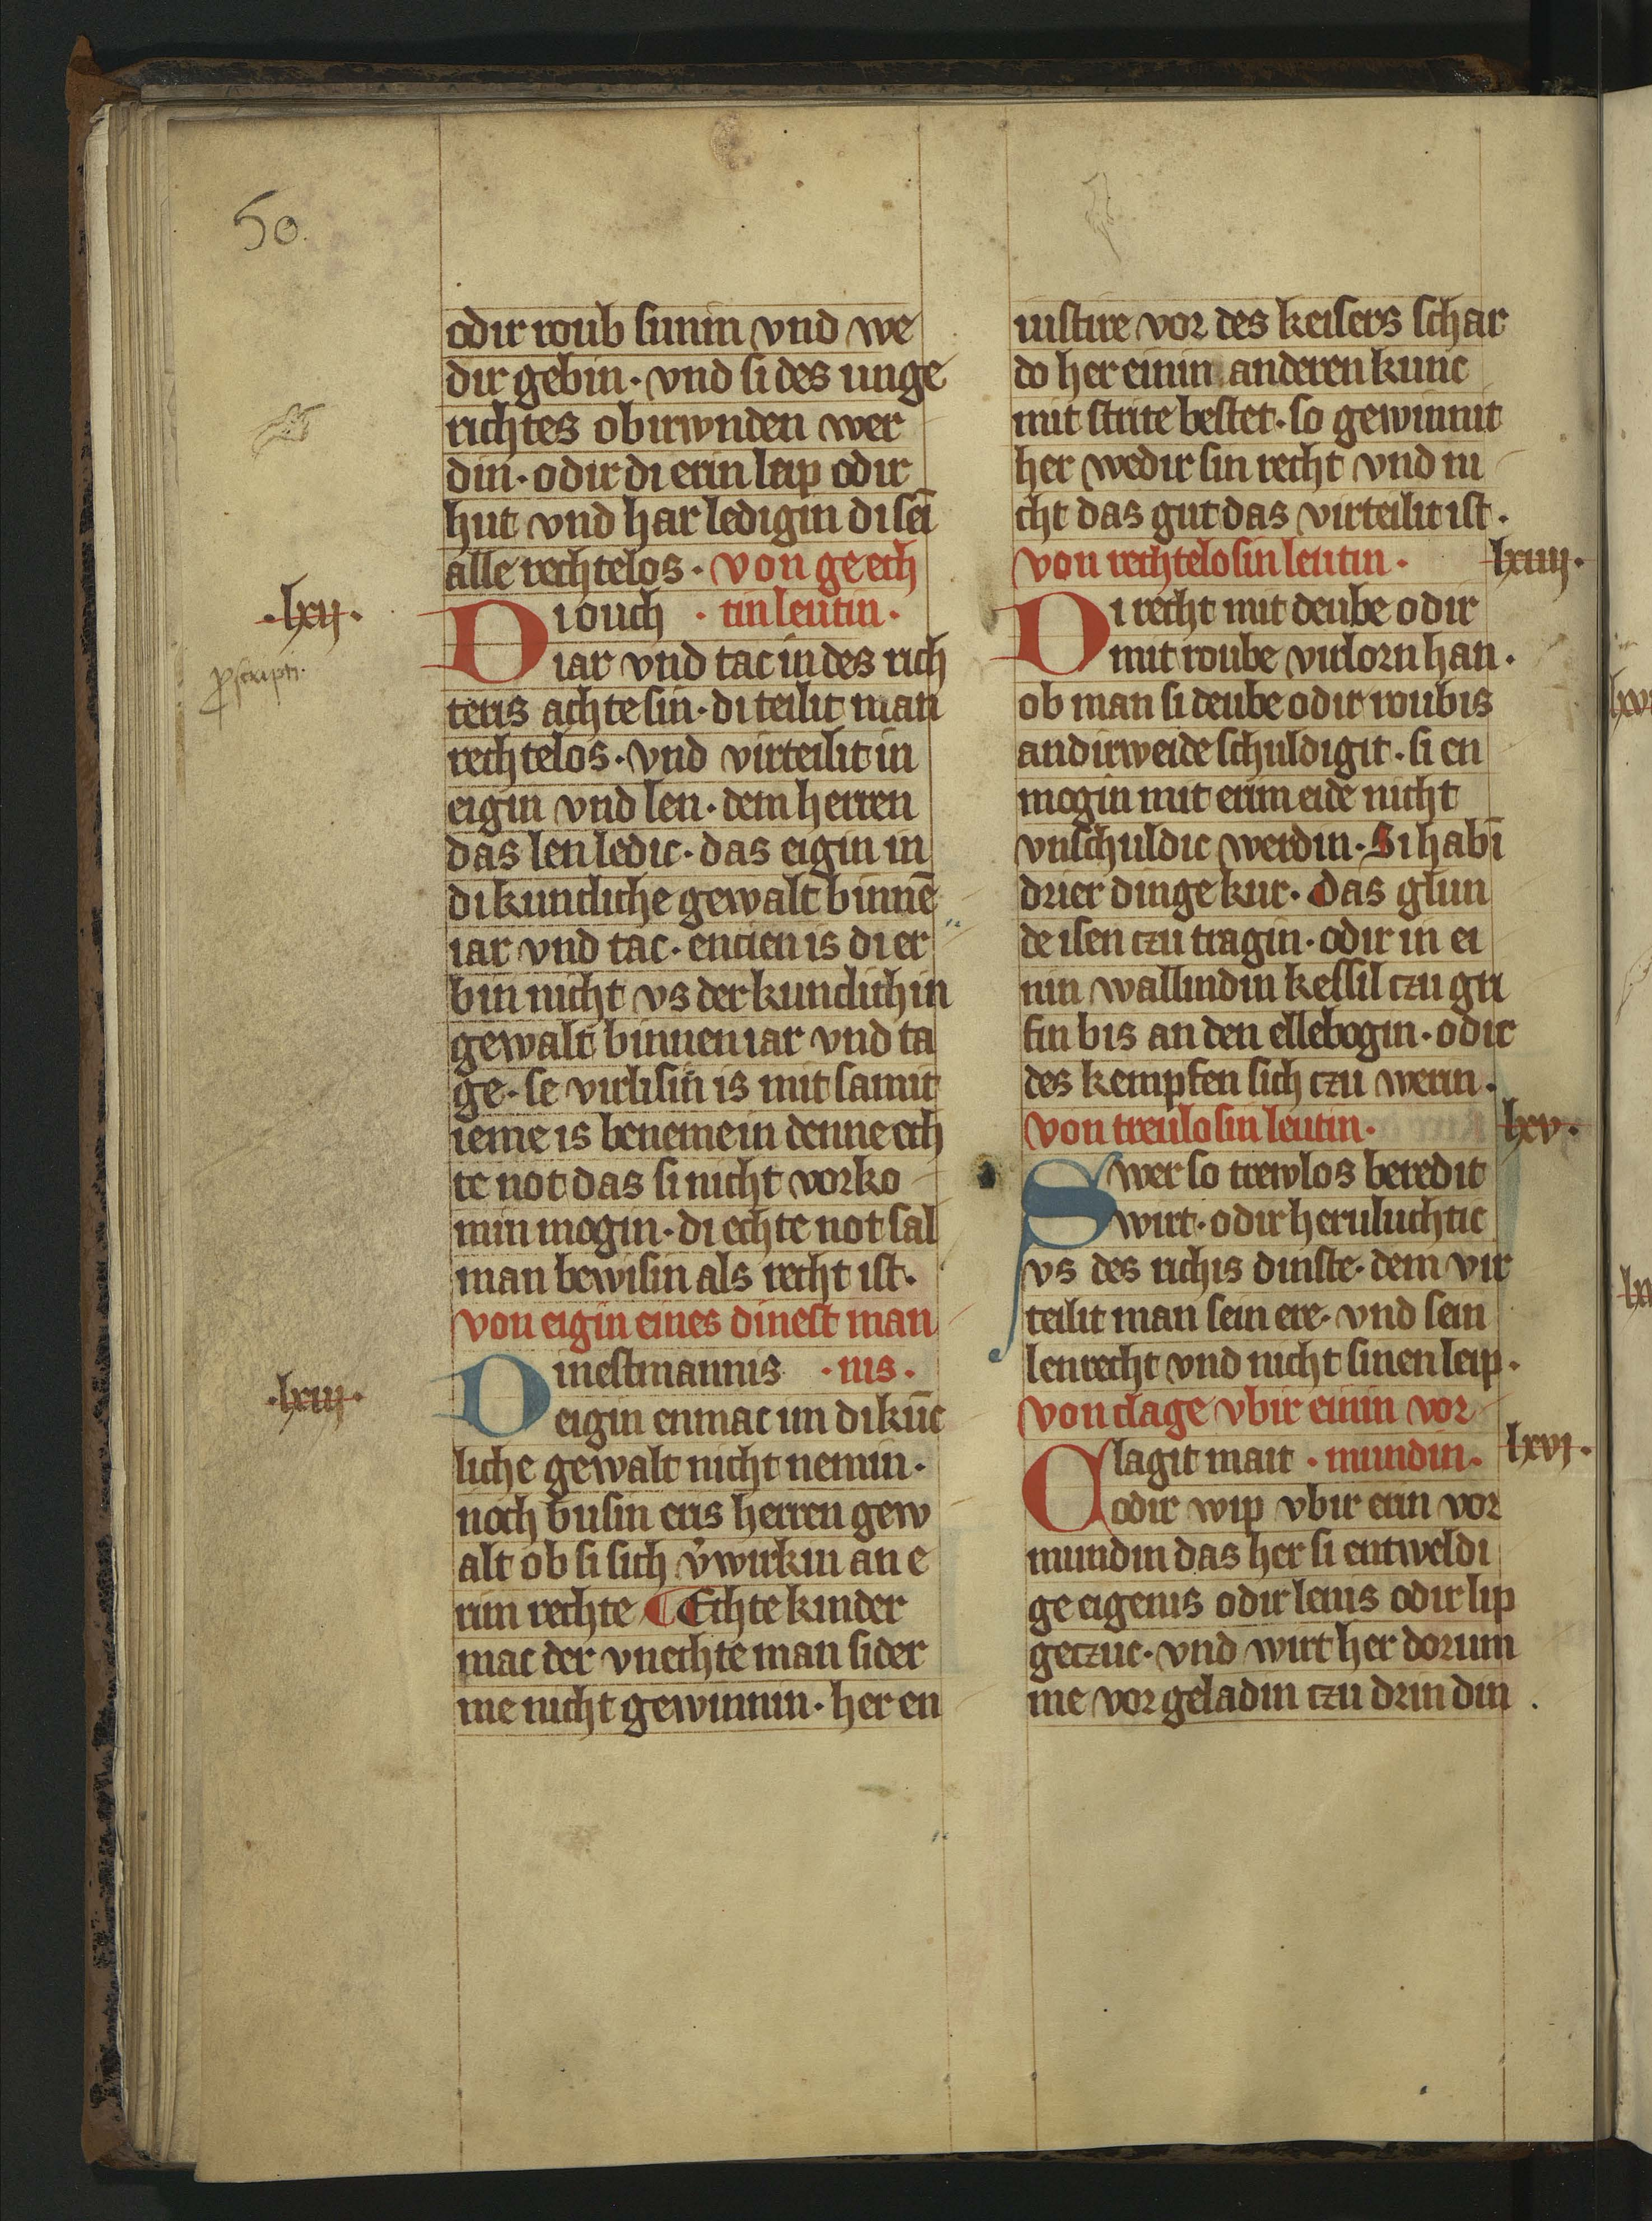 50.
odir roub sunin vnd we
dir gebin · vnd si des unge
richtes obirwnden wer
din · odir di erin leip odir
hut vnd har ledigin di sei
alle rechtelos · von geech
·lxij· Di ouch · tin leutin ·
iar vnd tac in des rich
proscripti.
teris achte sin · di teilit man
rechtelos · vnd virteilit in
eigin vnd len · dem herren
das len ledic · das eigin in
di kuncliche gewalt binnē
iar vnd tac · encien is di er
bin nicht vs der kunclichin
gewalt binnen iar vnd ta
ge · se virlisin is mit samit
ieme is beneme in denne ech
te not das si nicht vorko
min mogin · di echte not sal
man bewisin als recht ist ·
von eigin eines dinest man
·lxiij· Dinestmannis · nis ·
eigin enmac im di kūc
liche gewalt nicht nemin ·
noch busin eris herren gew
alt ob si sich v̓wirkin an e
rim rechte ¶ Echte kinder
mac der vnechte man sider
me nicht gewinnin · her en
uistire vor des keisers schar
do her einin anderen kunc
mit strite bestet · so gewinnit
her wedir sin recht vnd ni
cht das gut das virteilit ist ·
von rechtelosin leutin · lxiiij·
Di recht mit deube odir
mit roube virlorn han ·
ob man si deube odir roubis
andirweide schuldigit · si en
mogin mit erim eide nicht
vnschuldic werdin · Si habī
drier dinge kur · das glun
de isen czu tragin · odir in ei
nin wallindin kessil czu gri
fin bis an den ellebogin · odir
des kempfen sich czu werin ·
von treulosin leutin · lxv·
Swer so trewlos beredit
wirt · odir heruluchtic
vs des richis dinste · dem vir
teilit man sein ere · vnd sein
lenrecht vnd nicht sinen leip ·
von clage vbir einin vor
Clagit mait · mundin · lxvj·
odir wip vbir erin vor
mundin das her si entweldi
ge eigenis odir lenis odir lip
geczuc · vnd wirt her dorum
me vor geladin czu drin din